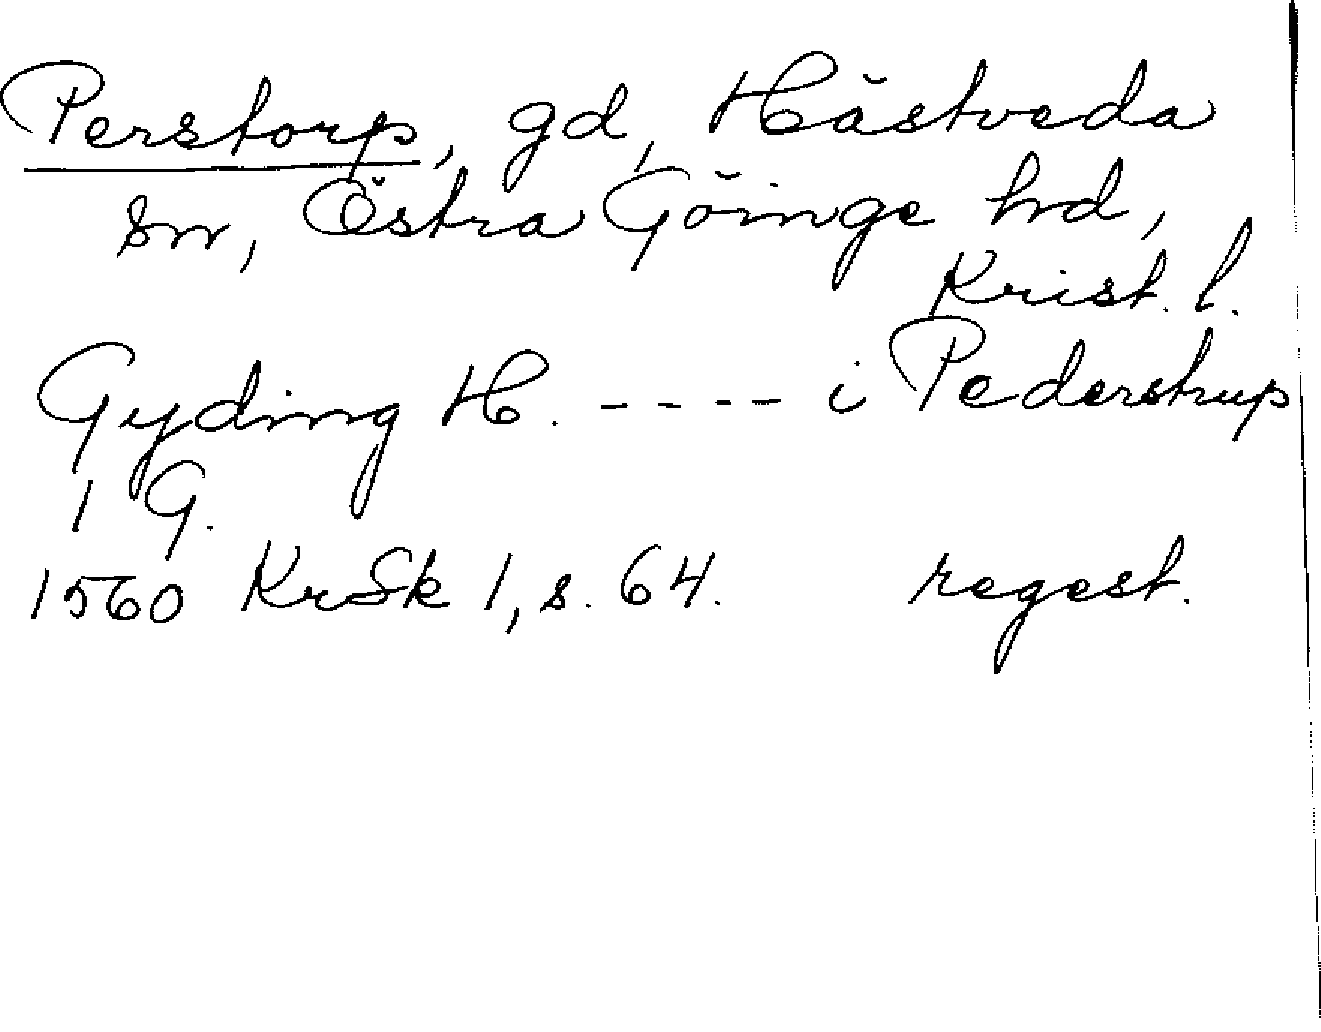 Perstorp, gd, Hästveda
sn, Östra Göinge hd,
Krist. l.
Gyding H. ---- i Pederstrup
1 G.
1560 KrSk 1, s. 64. regest.